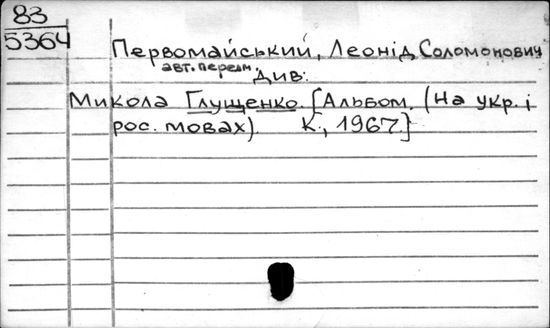 83
5364
Первомайський, Леонід Соломонович
авт. передм.
Див:
Микола Глущенко. [Альбом. (На укр. і
рос. мовах). К., 1967.]